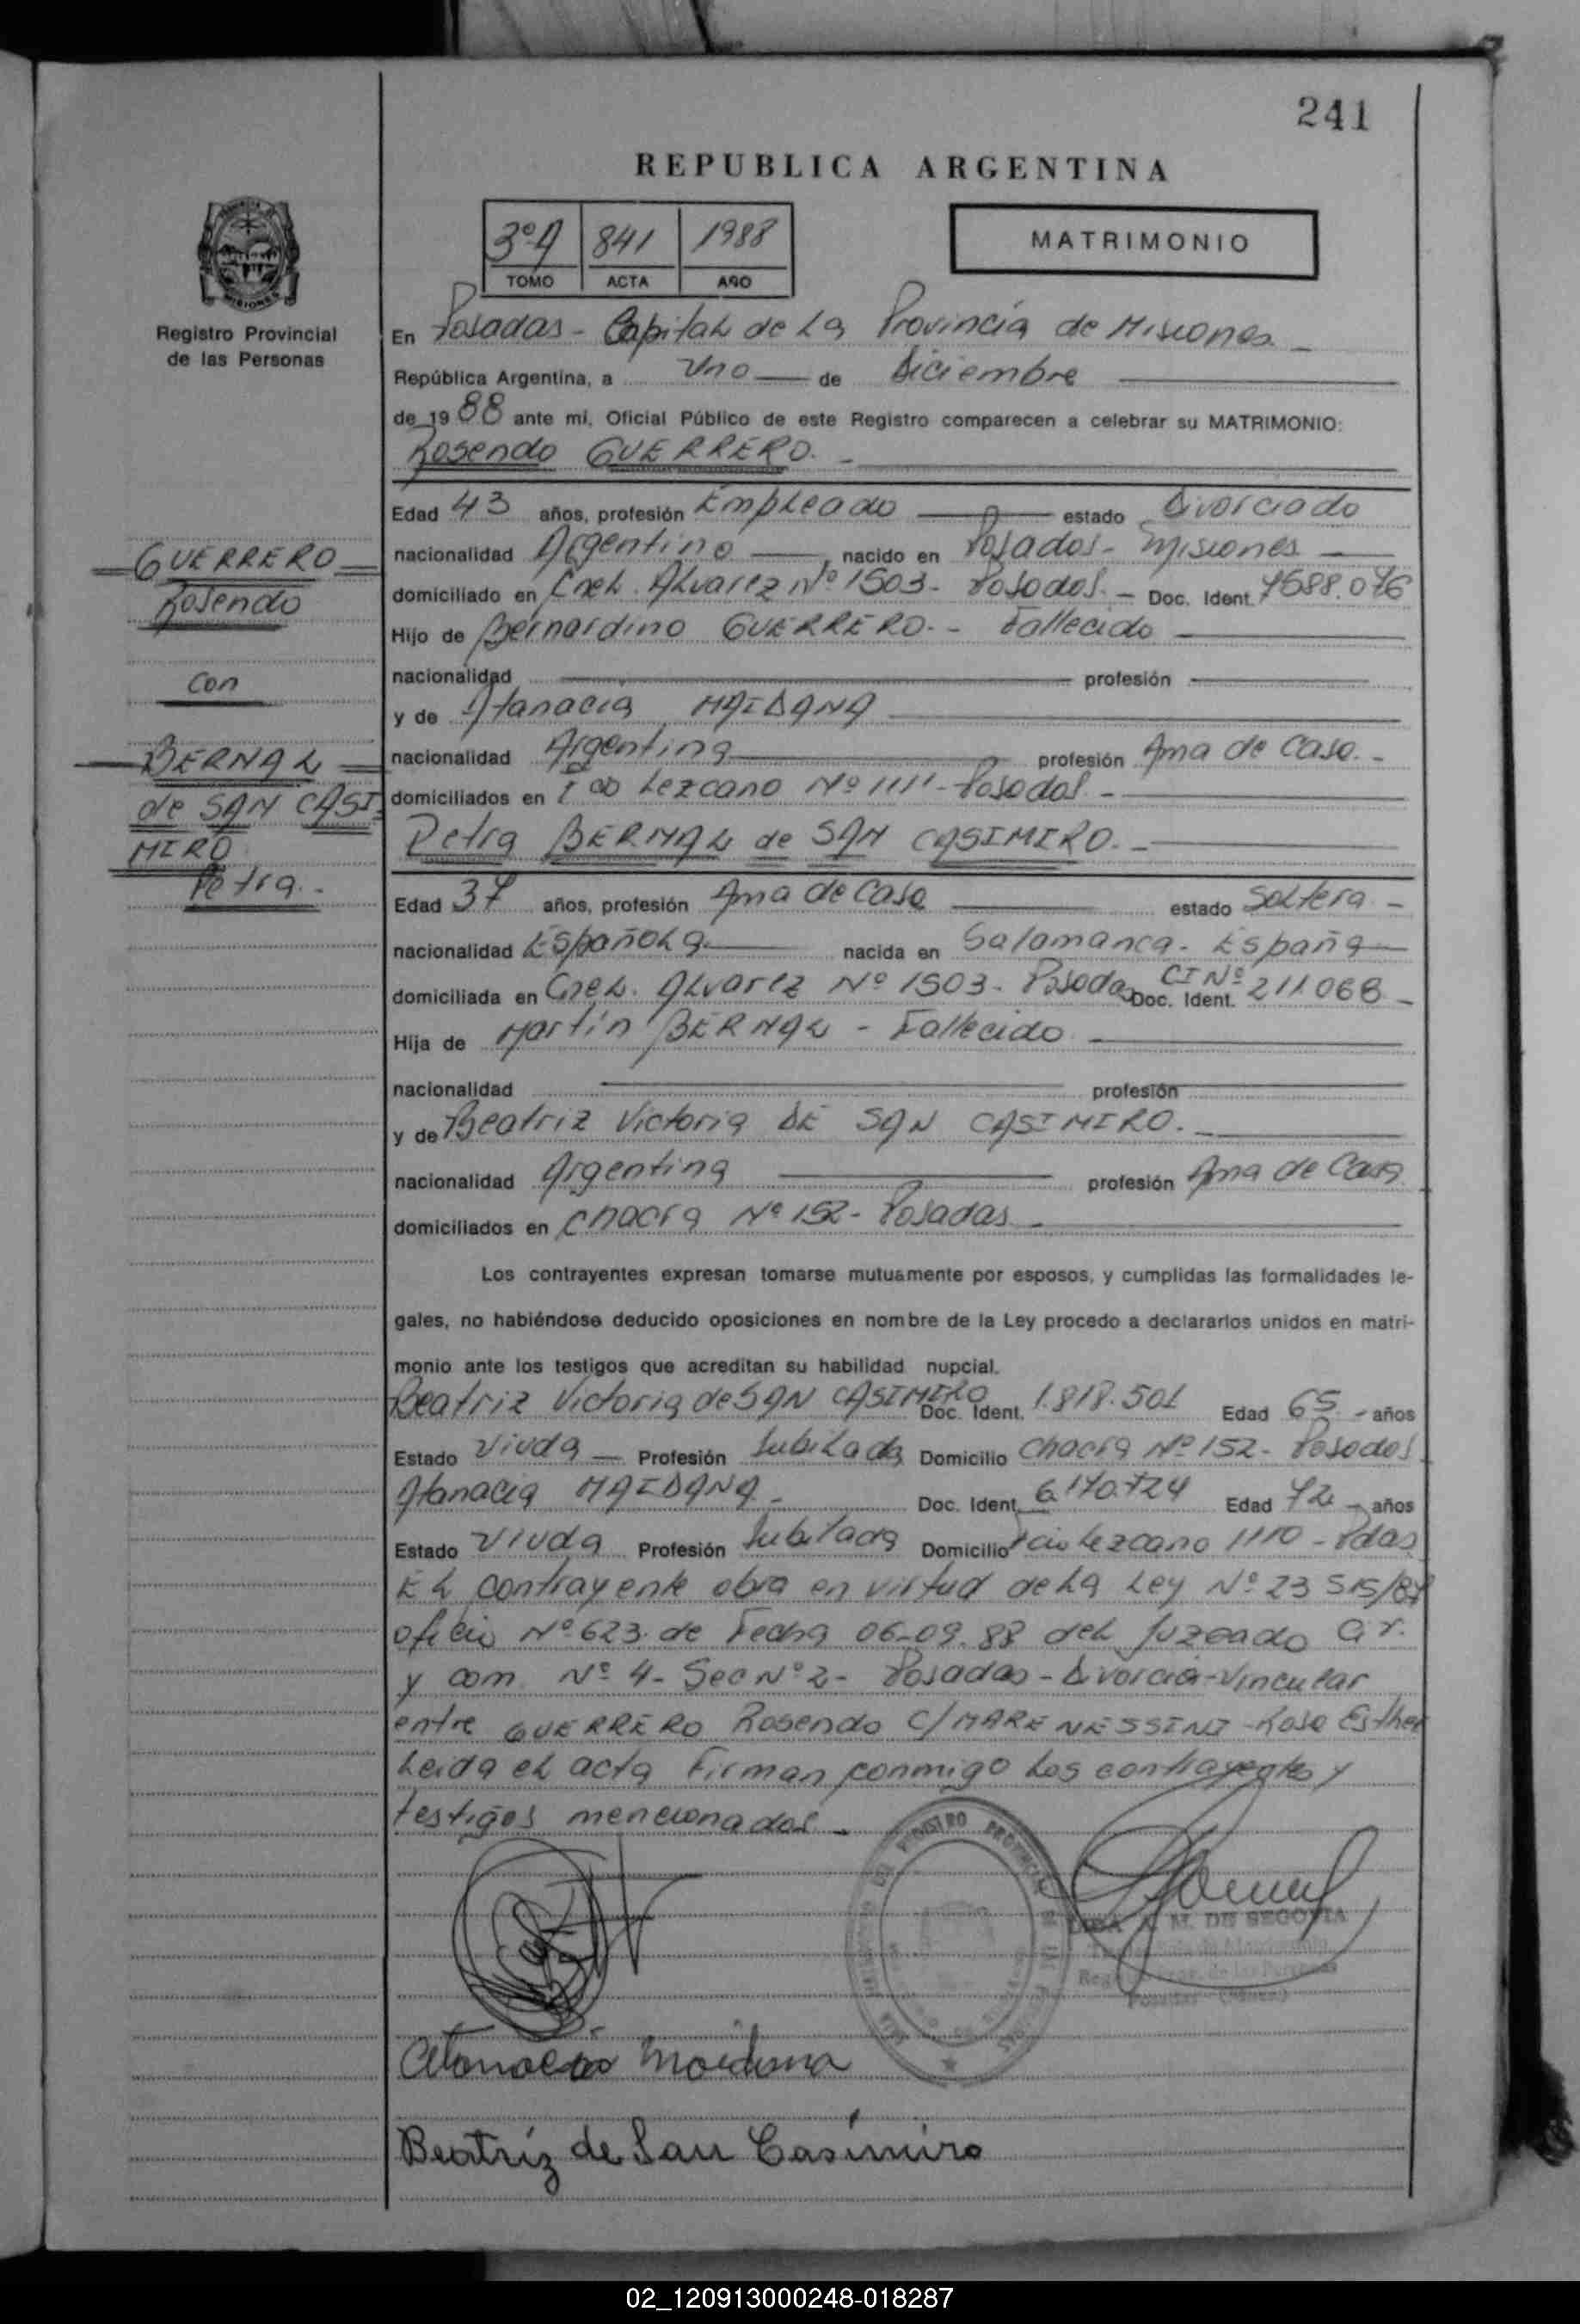 241
REPUBLICA ARGENTINA
3º A 841 1988
TOMO ACTA AÑO
MATRIMONIO
Registro Provincial
de las Personas
En Posadas - Capital de la Provincia de Misiones. -
República Argentina, a Uno de Diciembre
de 1988 ante mi, Oficial Público de este Registro comparecen a celebrar su MATRIMONIO:
Rosendo GUERRERO. -
Edad 43 años, profesión Empleado estado Divorciado
GUERRERO
Rosendo
con
BERNAL
de SAN CASI
MIRO
Petra. -
nacionalidad Argentino, nacido en Posadas - Misiones
domiciliado en Cnel. Alvarez Nº 1503 - Posadas. - Doc. Ident. 7588.076
Hijo de Bernardino GUERRERO. - Fallecido
nacionalidad profesión
y de Atanacia MAIDANA
nacionalidad Argentina profesión Ama de Casa. -
domiciliados en Lezcano Nº 1111 - Posadas. -
Petra BERNAL de SAN CASIMIRO. -
Edad 37 años, profesión Ama de Casa estado Soltera -
nacionalidad Española nacida en Salamanca - España
domiciliada en Cnel. Alvarez Nº 1503 - Posadas Doc. Ident. CI Nº 211.068 -
Hija de Martín BERNAL - Fallecido
nacionalidad profesión
y de Beatriz Victoria DE SAN CASIMIRO. -
nacionalidad Argentina profesión Ama de Casa
domiciliados en Chacra Nº 152 - Posadas -
Los contrayentes expresan tomarse mutuamente por esposos, y cumplidas las formalidades le-
gales, no habiéndose deducido oposiciones en nombre de la Ley procedo a declararlos unidos en matri-
monio ante los testigos que acreditan su habilidad nupcial.
Beatriz Victoria de SAN CASIMIRO Doc. Ident. 1.818.501 Edad 65 - años
Estado Viuda - Profesión Jubilada Domicilio Chacra Nº 152 - Posadas
Atanacia MAIDANA - Doc. Ident. 6.170.724 Edad 72 - años
Estado Viuda Profesión Jubilada Domicilio Fcio Lezcano 1110 - Pdas
El contrayente obra en virtud de la Ley Nº 23515/87
oficio Nº 623 de Fecha 06-09-88 del Juzgado Civ.
y com Nº 4 - Sec Nº 2 - Posadas - Divorcio - Vincular
entre GUERRERO Rosendo C/ MARENESSINI - Rosa Esther
Leida el acta Firman conmigo los contrayentes y
testigos mencionados. -
REGISTRO PROVINCIAL
M. DE SEGOVIA
Atanacia Maidana
Beatríz de San Casimiro
02_120913000248-018287